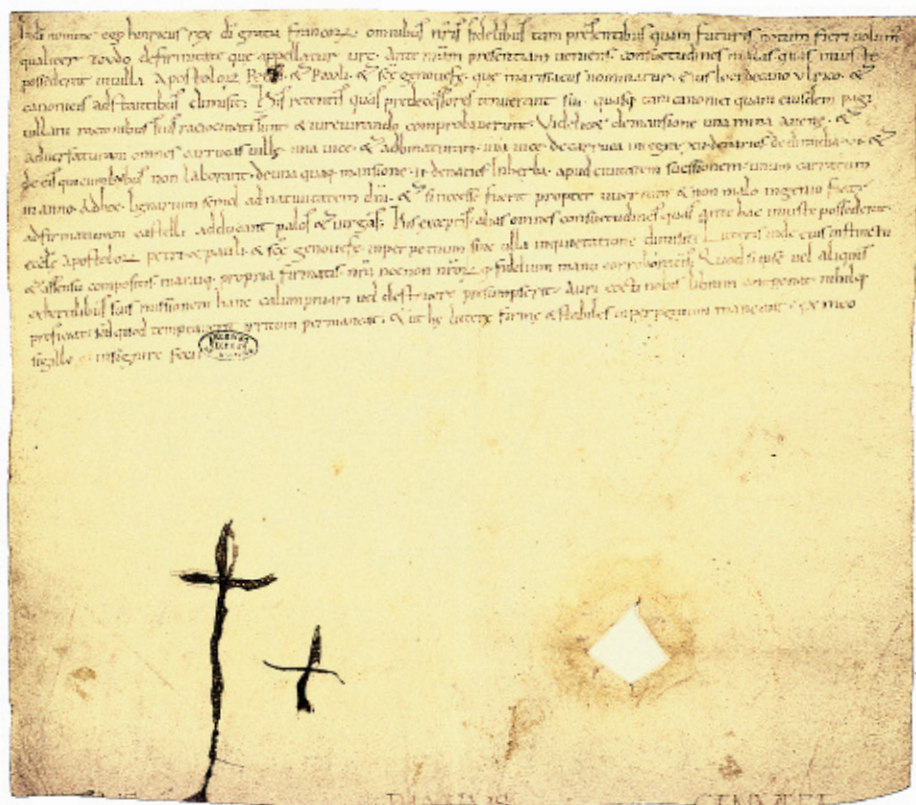 In dei nomine ego henricus rex di gratia francor omnibus nris fidelibus tam presentibus quam futuris notum fieri volum
qualiter tevdo de firmitate que appellatur urc ante nram presentiam veniens consuetudines malas quas iniuste
possederat in villa Apostolor Petri & Pauli & sce genovefe que marisiacus nominatur eius loci decano vlrico &
canonicis adstantibus dimisit his retentis quas predecessores tenuerant sui quasq tam canonici quam eiusdem pagi
villani racionibus suis raciocinati sunt & iureiurando comprobaverunt Videlicet de mansione una mina avene &
ad versaturam omnes carrucas ville una vice & ad binaturam una vice de carruca integra xii denarios de dimidia vi &
de eis qui cum bobus non laborant de una quaq mansione ii denarios In herba apud civitatem suessionem unum carratum
in anno Ad hoc lignarium semel ad nativitatem dni & si necesse fuerit propter werram & non malo ingenio fiat
ad firmaturam castelli adducant palos & virgas His exceptis alias omnes consuetudines quas ante hac iniuste possederat
eccle Apostolor petri & pauli & sce genovefe inperpetuum sine ulla inquietatione dimisit Litteris inde eius instinctu
& assensu compositis manuq propria firmatis nra necnon nror q fidelium manu corroboratis Quod si ipse vel aliquis
ex heredibus suis missionem hanc calumpniari vel destruere presumpserit Auri cocti nobis libram componat nihilq
proficiat sed quod temptaverit irritum permaneat & ut he littere firme & stabiles inperpetuum maneant ex meo
sigillo insignire feci